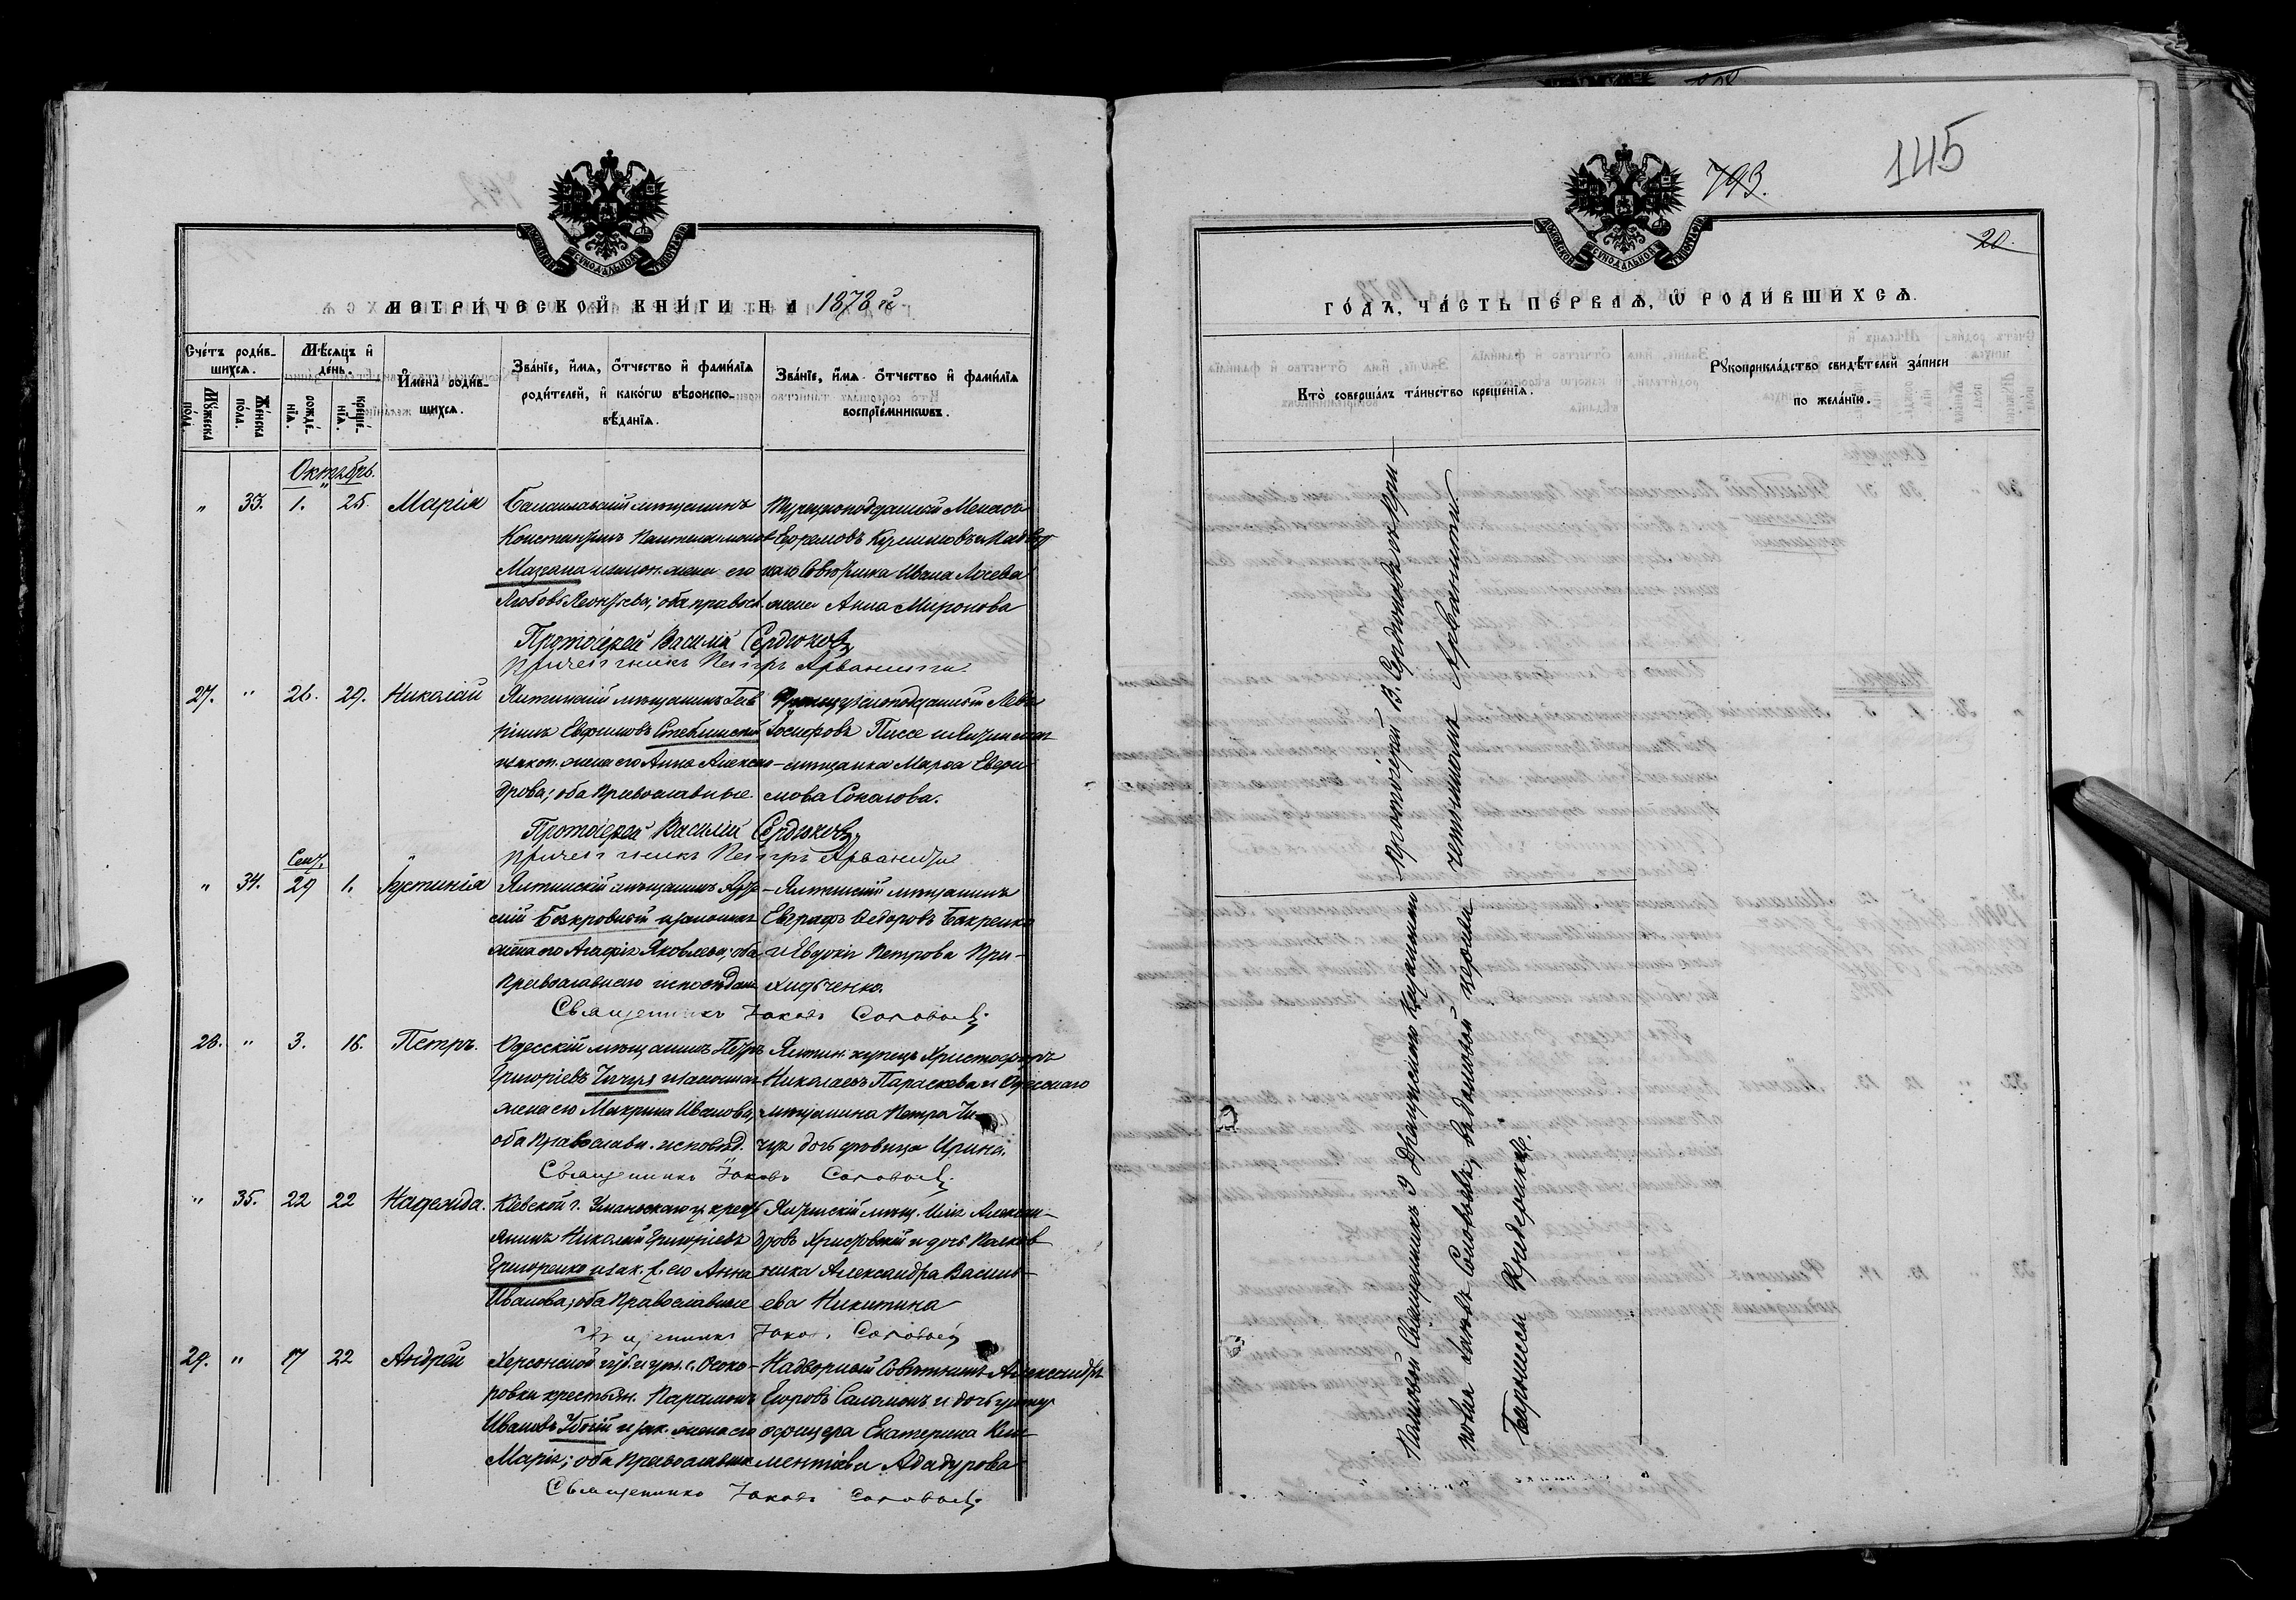 МЕТРИ́ЧЕСКОЙ КНИ́ГИ НА 1873 й
Сче́тъ роди́в-
шихся.
Мѣ́сяцъ и҆
де́нь.
Му́жеска
по́ла.
Же́нска
по́ла.
рожде́-
нїя.
креще́-
нїя.
И҆мена̀ роди́в-
шихся.
Зва́нїе, и҆́мя, ѻ҆́тчество и҆ фами́лїя
роди́телей, и҆ како́гѡ вѣроиспо-
вѣ́данїя.
Зва́нїе, и҆́мя ѻ҆́тчество и҆ фами́лїя
воспрїе́мникѡвъ.
Октябрь.
" 33. 1. 25. Марія
Балаклавскій мѣщанинъ
Константинъ Пантелеимонов
Мазгана и закон. жена его
Любовь Леонтьева; оба правосл.
Турецкоподданный
Ефремовъ и Надвор
наго Совѣтника Ивана Лосева
жена Анна Миронова
Протоіерей Василій Сердюковъ
Причетникъ Петръ Арванити
27. " 26. 29. Николай
Ялтинскій мѣщанинъ Гав
ріилъ Евфимовъ Стеблинскій
и закон. жена его Анна Алексан
дрова; оба Православные.
Французскоподданный Левъ
Іосифовъ Писсе и Ялтин
мѣщанка Марѳа Евфи
мова Соколова.
Протоіерей Василій Сердюковъ
Причетникъ Петръ Арванити
Сент.
" 34. 29 1. Іустинія
Ялтинскій мѣщанинъ
Безкровный и законная
жена его Агафія Яковлева; оба
Православнаго исповѣдан
Ялтинскій мѣщанинъ
Евграфъ Ѳедоровъ Бакренко
и Евдокія Петрова При-
ходченко.
Священникъ Іаковъ Соловьевъ.
28. " 3. 16. Петръ.
Одесскій мѣщанинъ Петръ
Григоріевъ Чичуя и законная
жена его Макрина Иванова,
оба Православн. исповѣд.
Ялтин. купецъ Христофоръ
Николаевъ Параскева и Одесскаго
мѣщанина Петра Чи
чуя дочь дѣвица Ирина.
Священникъ Іаковъ Соловьевъ.
" 35. 22 22 Надежда.
Кіевской г. Уманьскаго у. крест
янинъ Николай Григоріевъ
Григоренко и зак. ж. его Анна
Иванова; оба Православные
Ялтинскій мѣщ. Илія Алексан-
дровъ Христовскій и дочь Полков
ника Александра Василь-
ева Никитина
Священникъ Іаковъ Соловьевъ
29. " 17 22 Андрей
Херсонской губ. и уѣз. с. Осоко-
ровки крестьян. Парамонъ
Ивановъ Убогій и зак. жена его
Марія; оба Православные
Надворный Совѣтникъ Александръ
Егоровъ Саломонъ и дочь унтер
офицера Екатерина Кле-
ментіева Ададурова
Священникъ Іаковъ Соловьевъ.
793.
145
20.
ГО́ДЪ, ЧА́СТЬ ПЕ́РВАЯ, Ѡ҆ РОДИ́ВШИХСЯ.
Кто̀ соверша́лъ та́инство креще́нїя.
Рꙋкоприкла́дство свидѣ́телей за́писи
по жела́нїю.
Протоіерей В. Сердюковъ съ При-
четникомъ Арванитіемъ
Полковой Священникъ
Іаковъ Соловьевъ, въ домовой церкви
Баронессы